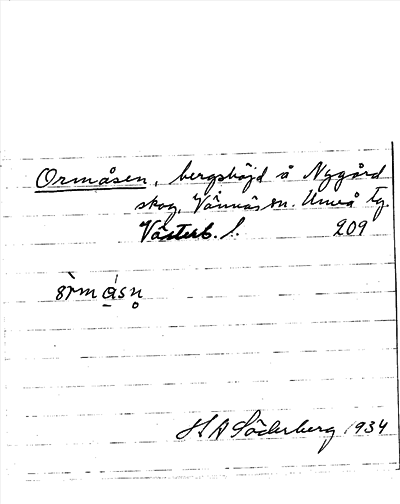 Ormåsen, bergshöjd å Nygård
skog, Vännäs sn. Umeå tg.
Västerb. l. 209
H A Söderberg 1934